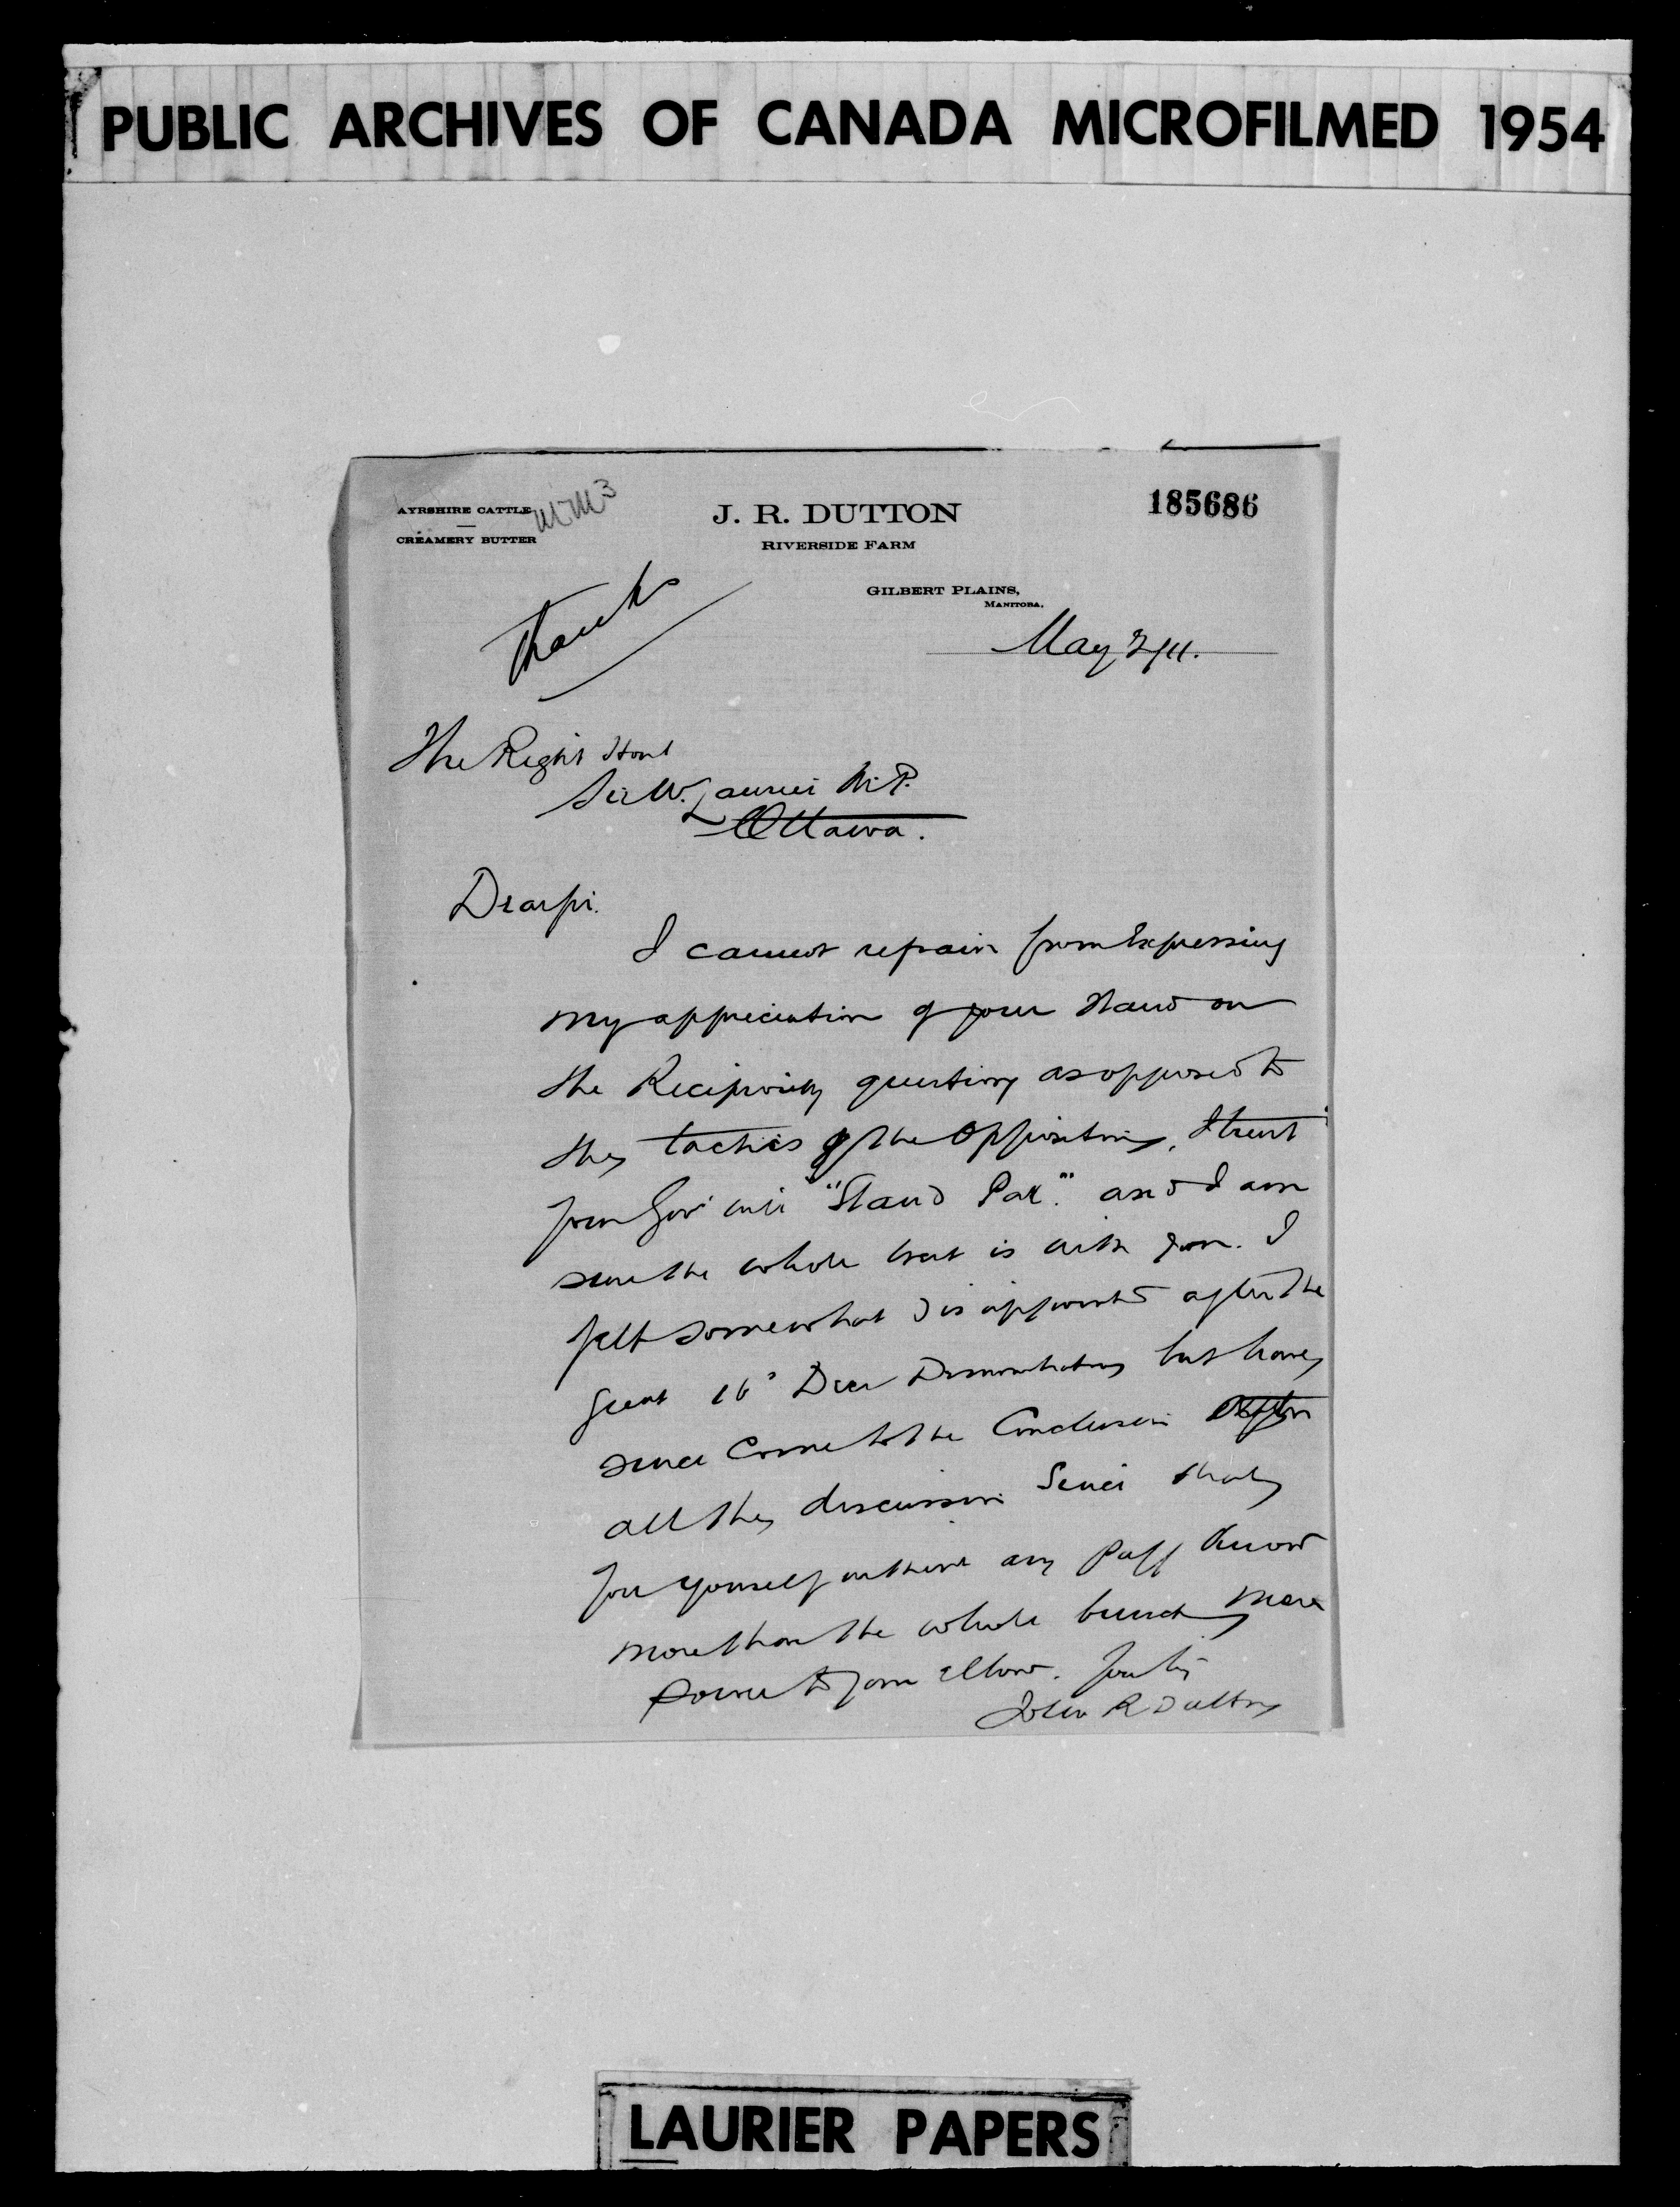 PUBLIC ARCHIVES OF CANADA MICROFILMED 1954
AYRSHIRE CATTLE
CREAMERY BUTTER
J. R. DUTTON
RIVERSIDE FARM
185686
GILBERT PLAINS,
MANITOBA.
Thanks
May 2/11.
The Right Honl
Sir W. Laurier M.P.
Ottawa.
Dear Sir.
I cannot refrain from Expressing
my appreciation of your stand on
the Reciprocity question as opposed to
the tactics of the Opposition, I trust
your Govt will "Stand Pat." and I am
sure the whole West is with you. I
felt somewhat disappointed after the
great 16" Decr Demonstration but have
since Come to the Conclusion after
all the discussion Since that
you yourself without any puff know
more than the whole bunch more
power to your elbow. Yours
John R Dutton
LAURIER PAPERS